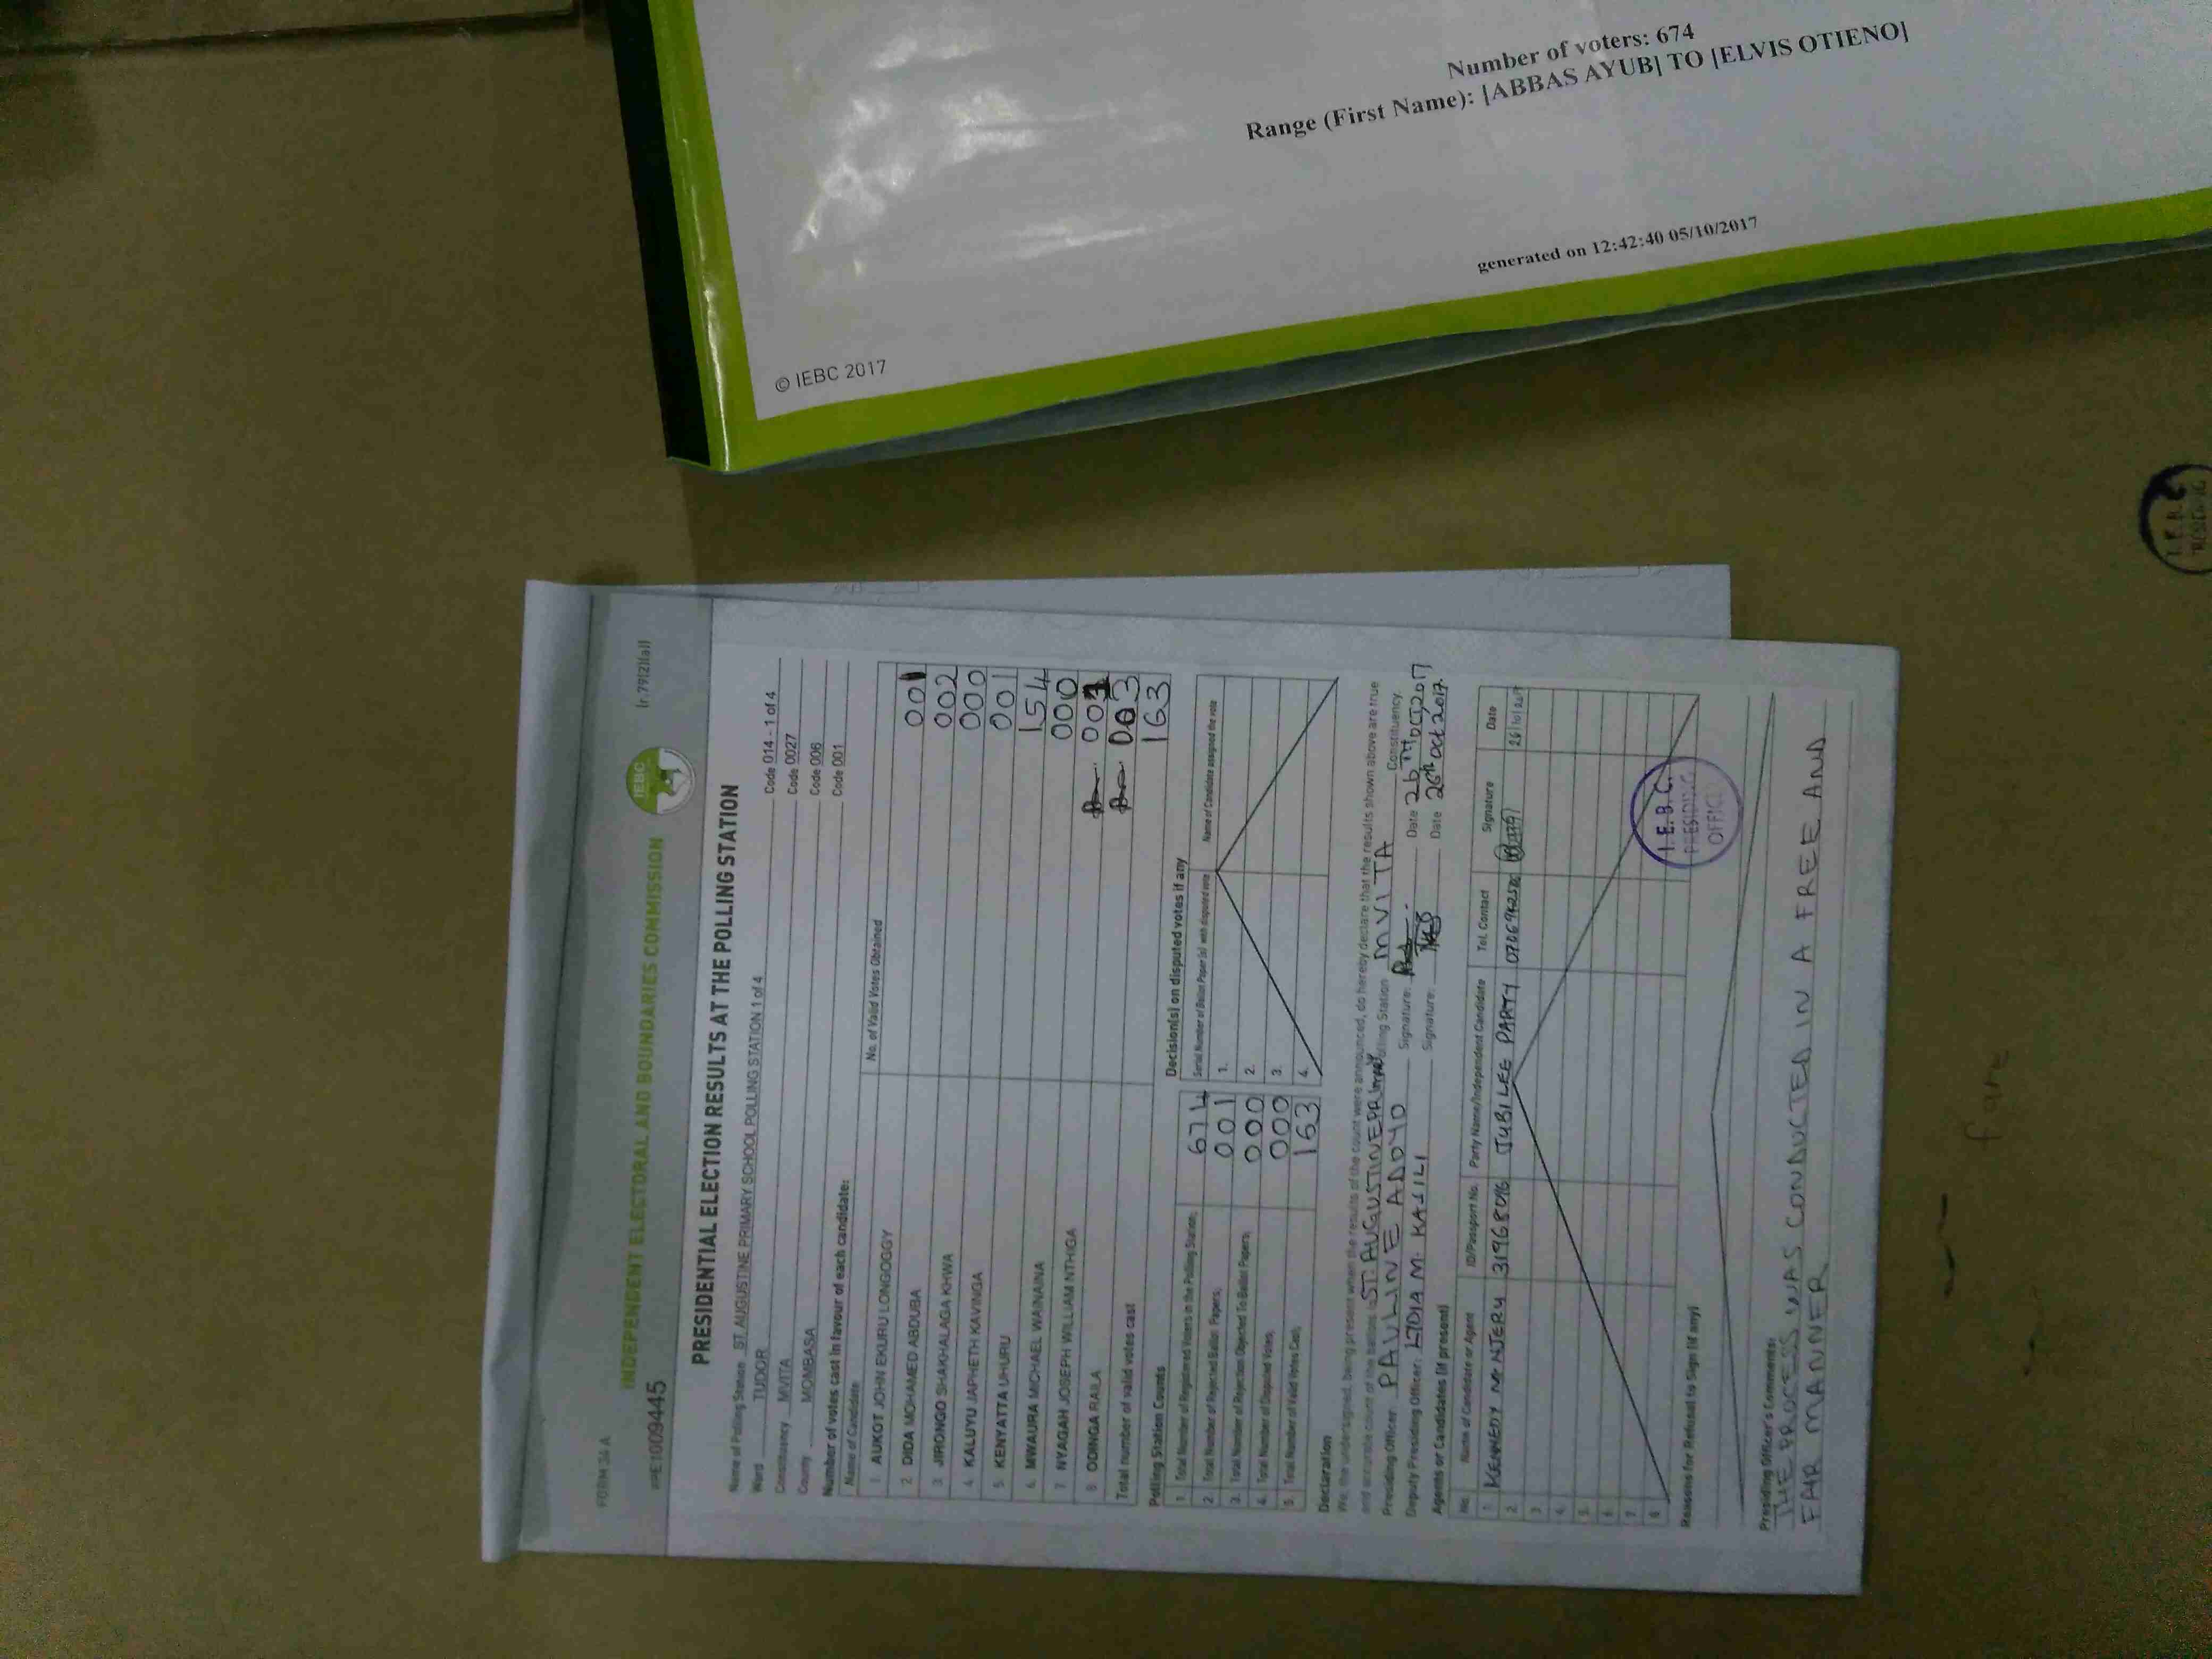 Number of voters: 674
Range (First Name): [ABBAS AYUB] TO [ELVIS OTIENO]
generated on 12:42:40 05/10/2017
© IEBC 2017
FORM 34 A
(r.79(2)(a))
INDEPENDENT ELECTORAL AND BOUNDARIES COMMISSION
IEBC
PE1009445
PRESIDENTIAL ELECTION RESULTS AT THE POLLING STATION
Name of Polling Station ST. AUGUSTINE PRIMARY SCHOOL POLLING STATION 1 of 4 Code 014 - 1 of 4
Ward TUDOR Code 0027
Constituency MVITA Code 006
County MOMBASA Code 001
Number of votes cast in favour of each candidate:
Name of Candidate No. of Valid Votes Obtained
1. AUKOT JOHN EKURU LONGOGGY 001
2. DIDA MOHAMED ABDUBA 002
3. JIRONGO SHAKHALAGA KHWA 000
4. KALUYU JAPHETH KAVINGA 001
5. KENYATTA UHURU 154
6. MWAURA MICHAEL WAINAINA 000
7. NYAGAH JOSEPH WILLIAM NTHIGA
8. ODINGA RAILA 003
Total number of valid votes cast 163
Polling Station Counts
1. Total Number of Registered Voters in the Polling Station; 674
2. Total Number of Rejected Ballot Papers; 001
3. Total Number of Rejection Objected To Ballot Papers; 000
4. Total Number of Disputed Votes; 000
5. Total Number of Valid Votes Cast; 163
Decision(s) on disputed votes if any
Serial Number of Ballot Paper (s) with disputed vote Name of Candidate assigned the vote
1.
2.
3.
4.
Declaration
We, the undersigned, being present when the results of the count were announced, do hereby declare that the results shown above are true
and accurate count of the ballots in ST. AUGUSTINE PRIMARY Polling Station MVITA Constituency.
Presiding Officer: PAULINE ADOYO Signature: Date 26TH OCT, 2017
Deputy Presiding Officer: LYDIA M. KASILI Signature: Date 26th Oct 2017.
Agents or Candidates (if present)
No. Name of Candidate or Agent ID/Passport No. Party Name/Independent Candidate Tel. Contact Signature Date
1 KENNEDY 31968096 JUBILEE PARTY 26/10/2017
2
3
4
5
6
7
8
I.E.B.C.
PRESIDING
OFFICER
Reasons for Refusal to Sign (if any)
Presiding Officer's Comments:
THE PROCESS WAS CONDUCTED IN A FREE AND
FAIR MANNER